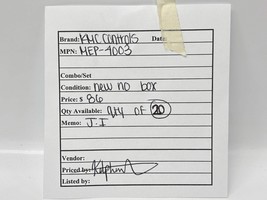 Brand: KMC Controls Date:
MPN: MEP-4003
Combo/Set
Condition: new no box
Price: $ 86
Qty Available: Qty of 20
Memo: J.I
Vendor:
Priced by:
Listed by: